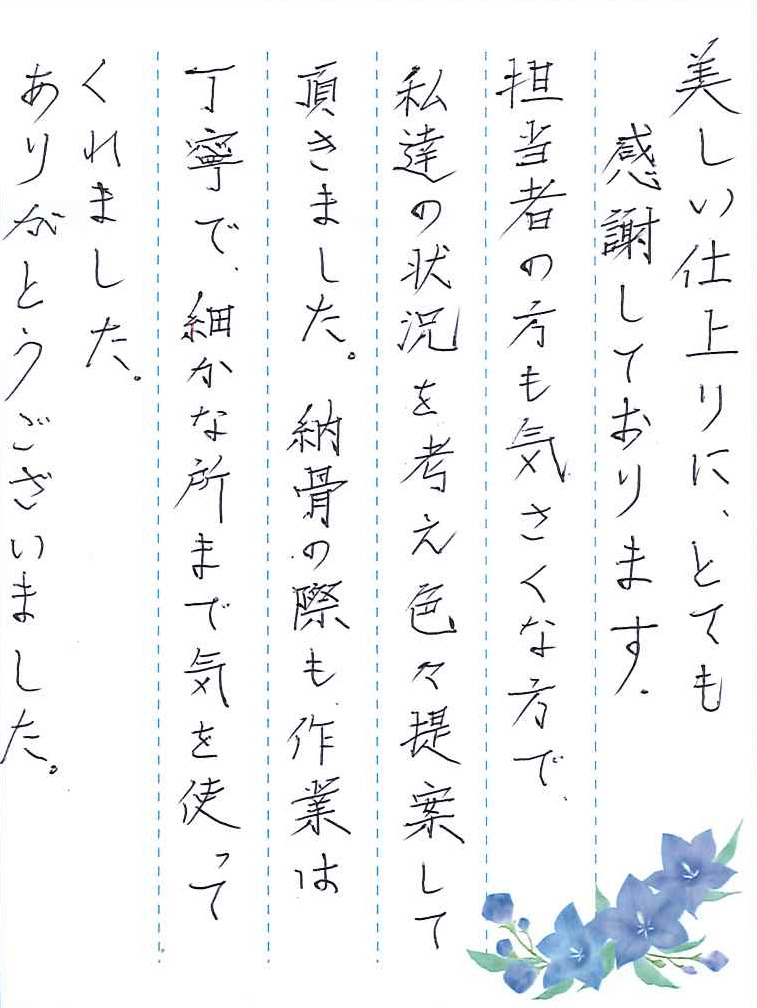 美しい仕上りに、とても
感謝しております.
担当者の方も気さくな方で、
私達の状況を考え色々提案して
頂きました。納骨の際も作業は
丁寧で、細かな所まで気を使って
くれました。
ありがとうございました。